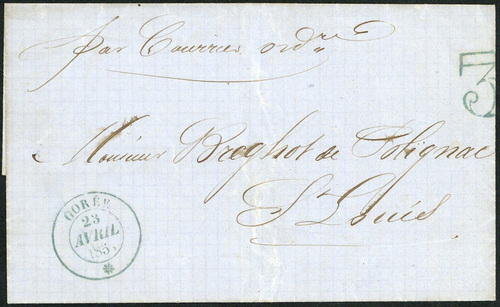 par Courrier ord.re
3
Monsieur Breghot de Polignac
St Louis
GORÉE
23
AVRIL
185